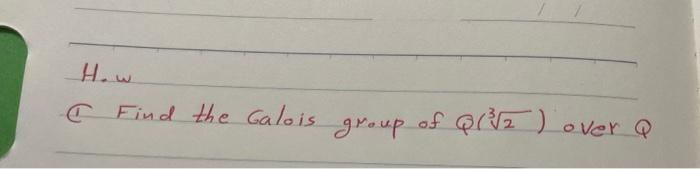 H.w
① Find the Galois group of Q(∛2) over Q